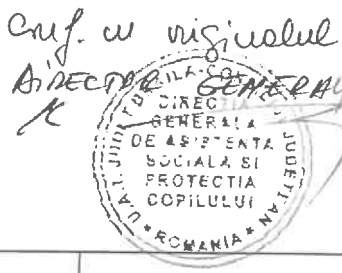 Conf. cu originalul
DIRECTOR GENERAL
DIRECȚIA
GENERALA
DE ASISTENTA
SOCIALA SI
PROTECTIA
COPILULUI
* ROMANIA *